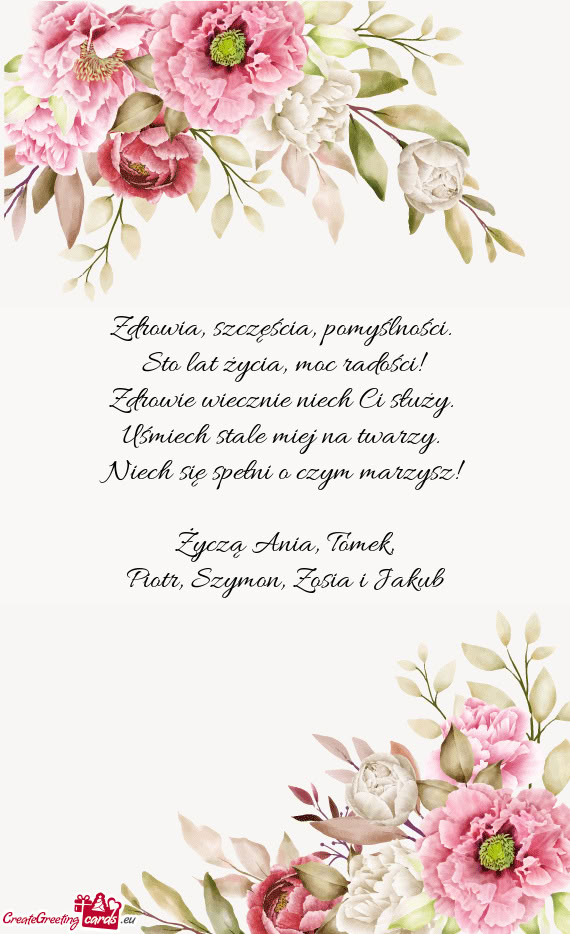 Zdrowia, szczęścia, pomyślności.
Sto lat życia, moc radości!
Zdrowie wiecznie niech Ci służy.
Uśmiech stale miej na twarzy.
Niech się spełni o czym marzysz!
Życzą Ania, Tomek,
Piotr, Szymon, Zosia i Jakub
CreateGreeting cards .eu